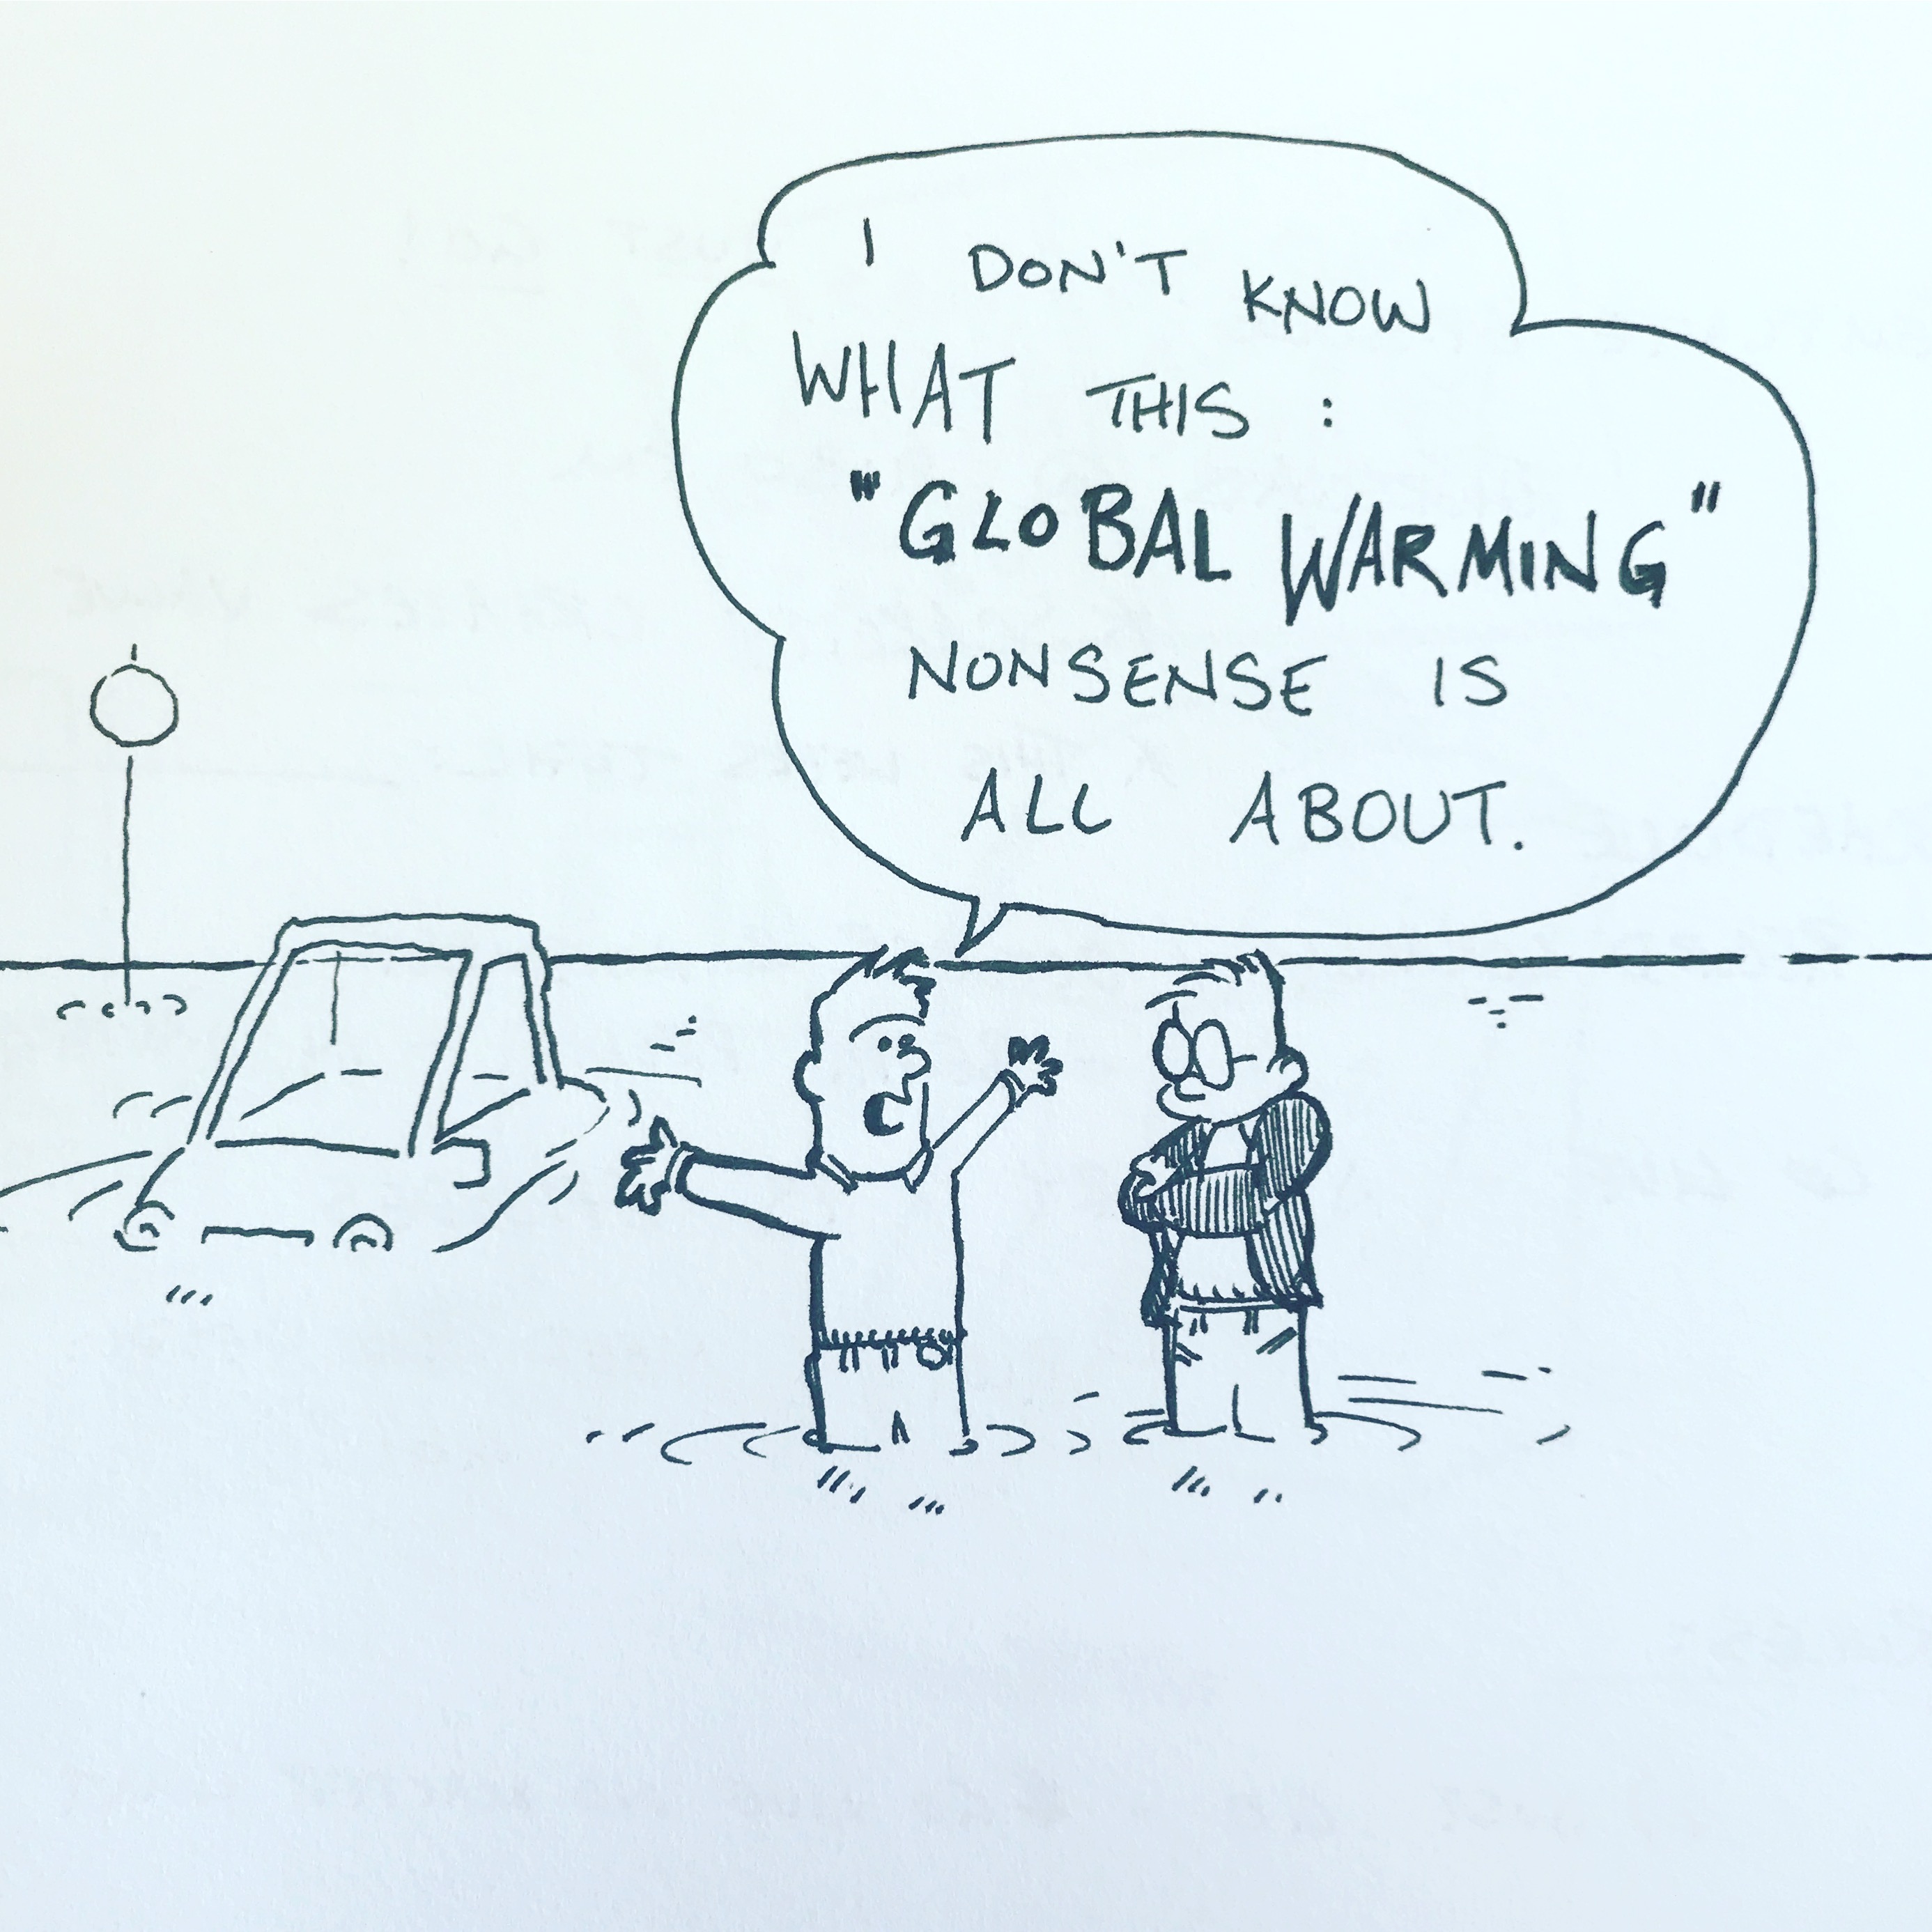 I DON'T KNOW
WHAT THIS :
"GLOBAL WARMING"
NONSENSE IS
ALL ABOUT.